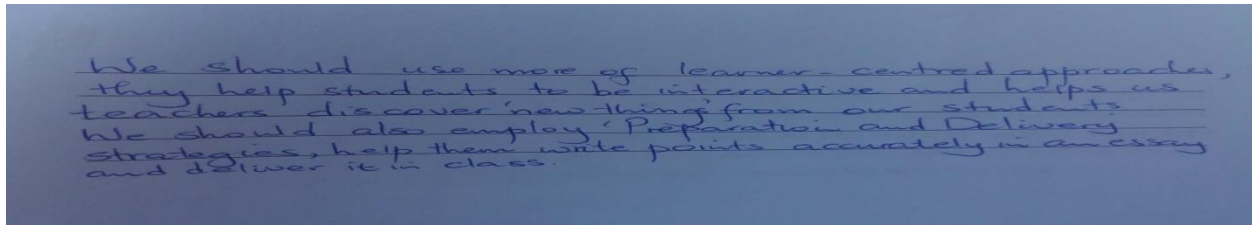 We should use more of learner-centred approaches,
they help students to be interactive and helps us
teachers discover 'new things' from our students
We should also employ 'Preparation and Delivery
strategies, help them write points accurately in an essay
and deliver it in class.